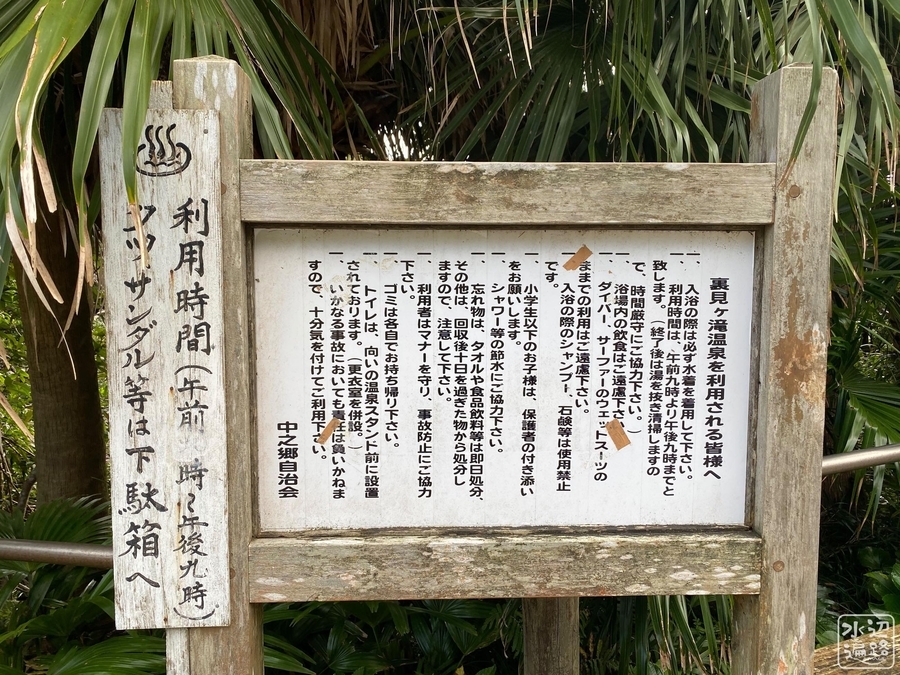 裏見ヶ滝温泉を利用される皆様へ
一、入浴の際は必ず水着を着用して下さい。
一、利用時間は、午前九時より午後九時までと
致します。（終了後は湯を抜き清掃しますの
で、時間厳守にご協力下さい。）
一、浴場内の飲食はご遠慮下さい
一、ダイバー、サーファーのウェットスーツの
ままでの利用はご遠慮下さい。
一、入浴の際のシャンプー、石鹸等は使用禁止
です。
一、小学生以下のお子様は、保護者の付き添い
をお願いします。
一、シャワー等の節水にご協力下さい。
一、忘れ物は、タオルや食品飲料等は即日処分、
その他は、回収後十日を過ぎた物から処分し
ますので、注意して下さい。
一、利用者はマナーを守り、事故防止にご協力
下さい。
一、ゴミは各自でお持ち帰り下さい。
一、トイレは、向いの温泉スタンド前に設置
されております。（更衣室を併設。）
一、いかなる事故においても責任は負いかねま
すので、十分気を付けてご利用下さい。
中之郷自治会
利用時間（午前 時〜午後九時）
クツ サンダル等は下駄箱へ
水辺
遍路